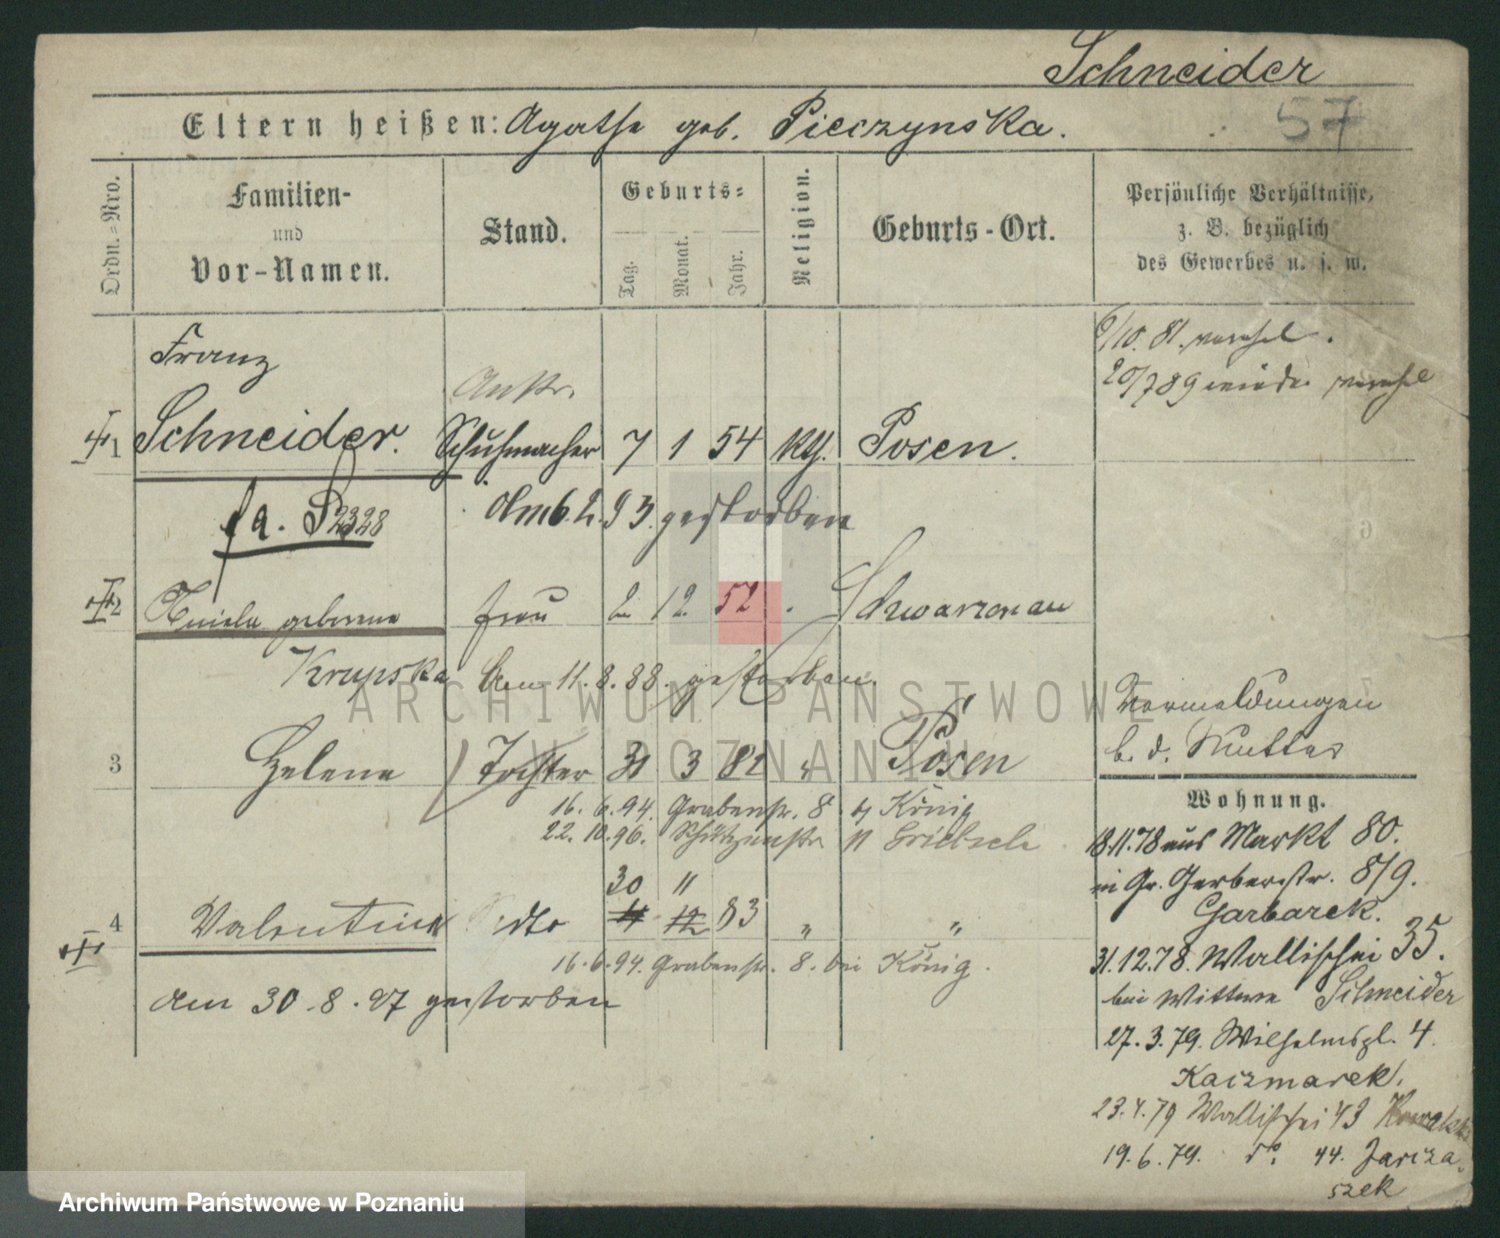 Schneider
57
Eltern heißen: Agathe geb. Pieczynska.
Ordn.=Nro.
Familien-
und
Vor-Namen.
Stand.
Geburts=
Tag.
Monat.
Jahr.
Religion.
Geburts-Ort.
Persönliche Verhältnisse,
z. B. bezüglich
des Gewerbes u. s. w.
6/10. 81.
20/7 89 wieder
Franz
1 Schneider. Schuhmacher 7 1 54 kth. Posen.
fa. S 2328
Am 6. 2. 93. gestorben
2 geborene Frau 2 12 52 Schwarzenau
Krupska Am 11. 8. 88. gestorben.
Vormeldungen
b. d. Mutter
3 Helene Tochter 31 3 82 " Posen
16. 6. 94. Grabenstr. 8 b/ König
22. 10. 96. Schützenstr 11
30 "
4 Valentin dto 4 12 83 " "
16. 6. 94. Grabenstr. 8. bei König.
am 30. 8. 97 gestorben
Wohnung.
18.11.78 aus Markt 80.
in Gr. Gerberstr. 8/9.
Garbarek.
31.12.78. Wallischei 35.
bei Wittwe Schneider
27. 3. 79. Wilhelmspl. 4.
Kaczmarek.
23. 4. 79 Wallischei 43 Kowalski
19. 6. 79. do. 44. Jarcza-
szek
ARCHIWUM PAŃSTWOWE
W POZNANIU
Archiwum Państwowe w Poznaniu